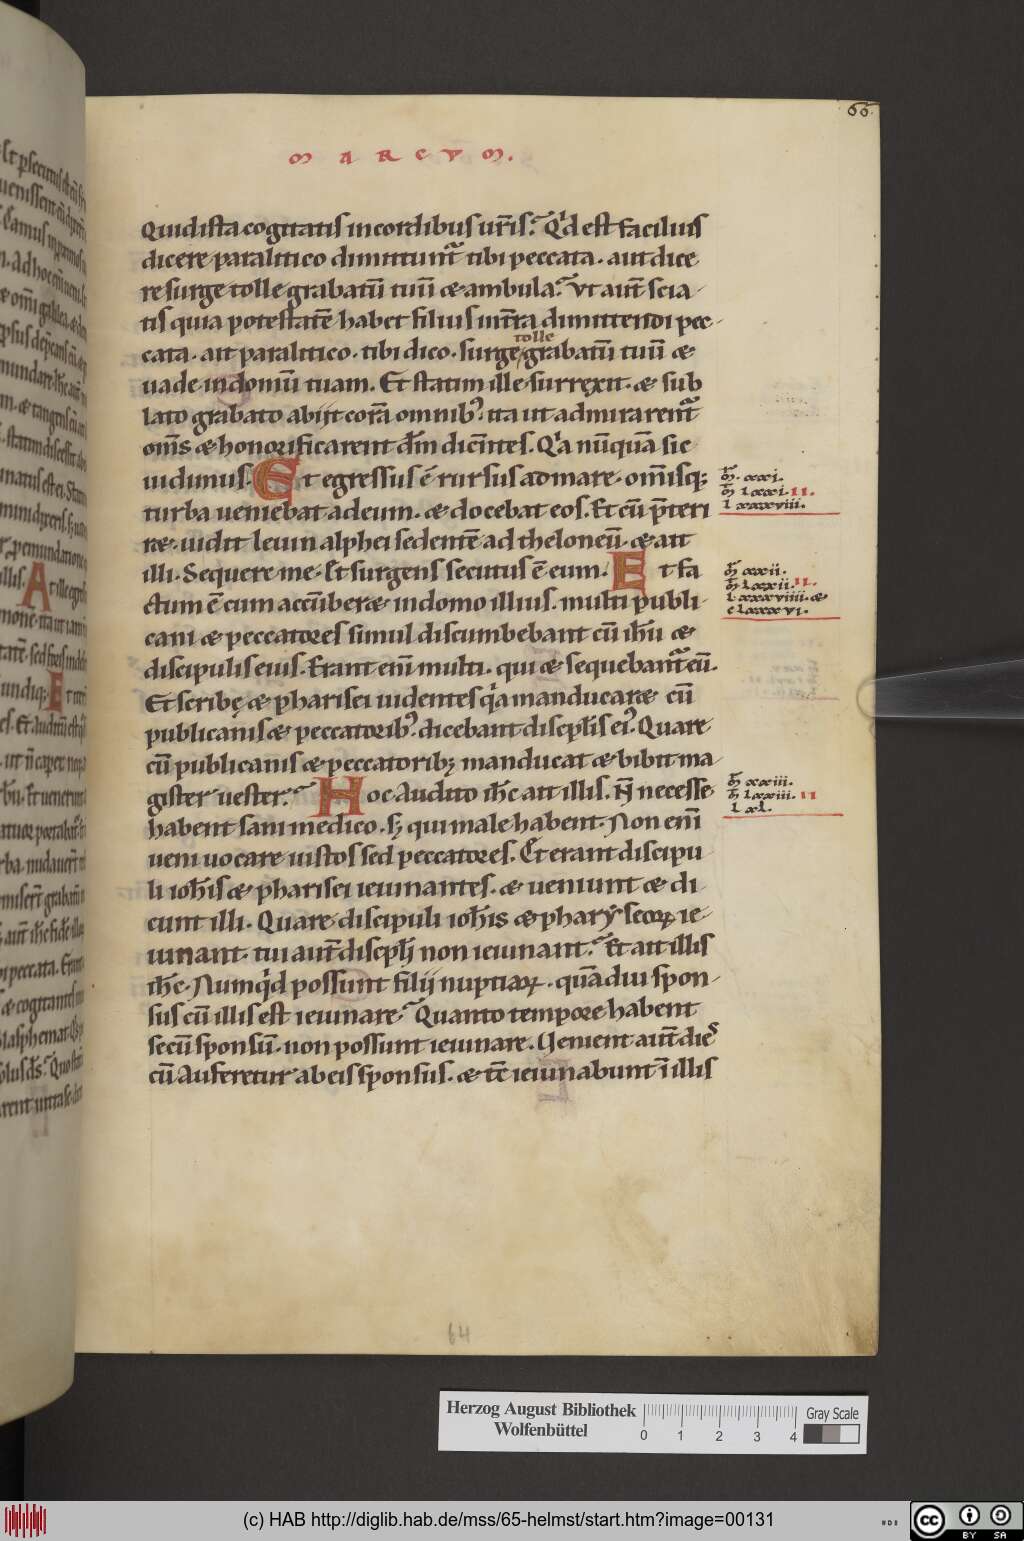 66
MARCVM.
Quid ista cogitatis in cordibus ur̄is? Qͥd est facilius
dicere paralitico dimittunt᷑ tibi peccata. aut dice
re surge tolle grabatū tuū & ambula? Vt aut̄ scia
tis quia potestatē habet filius int̄ra dimittendi pec
cata. ait paralitico. tibi dico. surge, grabatū tuū &
tolle
uade in domū tuam. Et statim ille surrexit. & sub
lato grabato abijt corā omnib; ita ut admirarent᷑
om̄s & honorificarent dm̄ dicentes. Qͥa nūquā sic
uidimus. Et egressus ē rursus ad mare. om̄isq;
turba ueniebat ad eum. & docebat eos. Et cū p̄teri
r&. uidit leuin alphei sedentē ad theloneū. & ait
illi. Sequere me. Et surgens secutus ē eum. Et fa
ctum ē cum accūber& in domo illius. multi publi
cani & peccatores simul discumbebant cū ih̄u &
discipulis eius. Erant enī multi. qui & sequebant᷑ eū.
Et scribę & pharisei uidentes qͥa manducar& cū
publicanis & peccatorib; dicebant discipl̄is ei᷒. Quare
cū publicanis & peccatorib; manducat & bibit ma
gister uester? Hoc audito ih̄c ait illis. N̄ necesse
habent sani medico. s; qui male habent. Non enī
ueni uocare iustos sed peccatores. Et erant discipu
li ioh̄is & pharisei ieiunantes. & ueniunt & di
cunt illi. Quare discipuli ioh̄is & pharyseoꝝ ie
iunant. tui aut̄ discipl̄i non ieiunant? Et ait illis
ih̄c. Numqͥd possunt filij nuptiaꝝ. quādiu spon
sus cū illis est ieiunare? Quanto tempore habent
secū sponsū. non possunt ieiunare. Venient aut̄ dies
cū auferetur ab eis sponsus. & tc̄ ieiunabunt ī illis
m̄. xxi.
m̄ lxxi. II.
l xxxviii.
m̄ xxii.
m̄ lxxii. II.
l. xxxviiii. &
c lxxxvi.
m̄ xxiii.
m̄ lxxiii. II
l xl.
64
Herzog August Bibliothek
Wolfenbüttel
0 1 2 3 4
Gray Scale
(c) HAB http://diglib.hab.de/mss/65-helmst/start.htm?image=00131
cc
BY SA